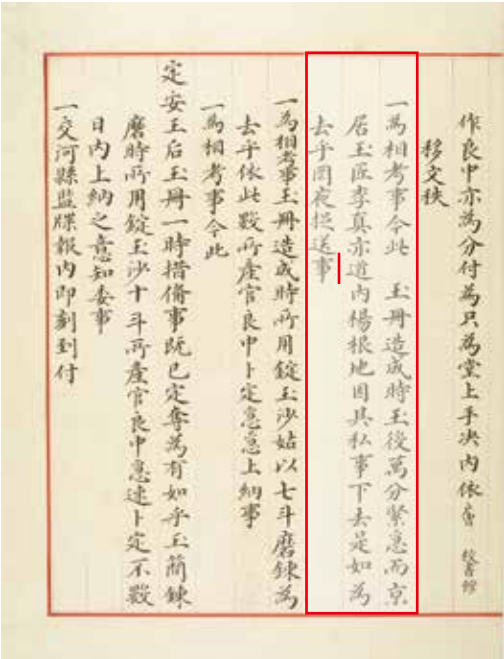 作良中亦為分付為只為堂上手决內依 校書館
移文秩
一為相考事今此 玉冊造成時玉役萬分緊急而京
居玉匠李真亦道內楊根地因其私事下去是如為
去乎罔夜捉送事
一為相考事玉冊造成時所用錠玉沙姑以七斗磨鍊為
去乎依此數所產官良中卜定急急上納事
一為相考事今此
定安王后玉冊一時措備事既已定奪為有如乎玉簡鍊
磨時所用錠玉沙十斗所產官良中急速卜定不數
日內上納之意知委事
一交河縣監牒報內即刻到付